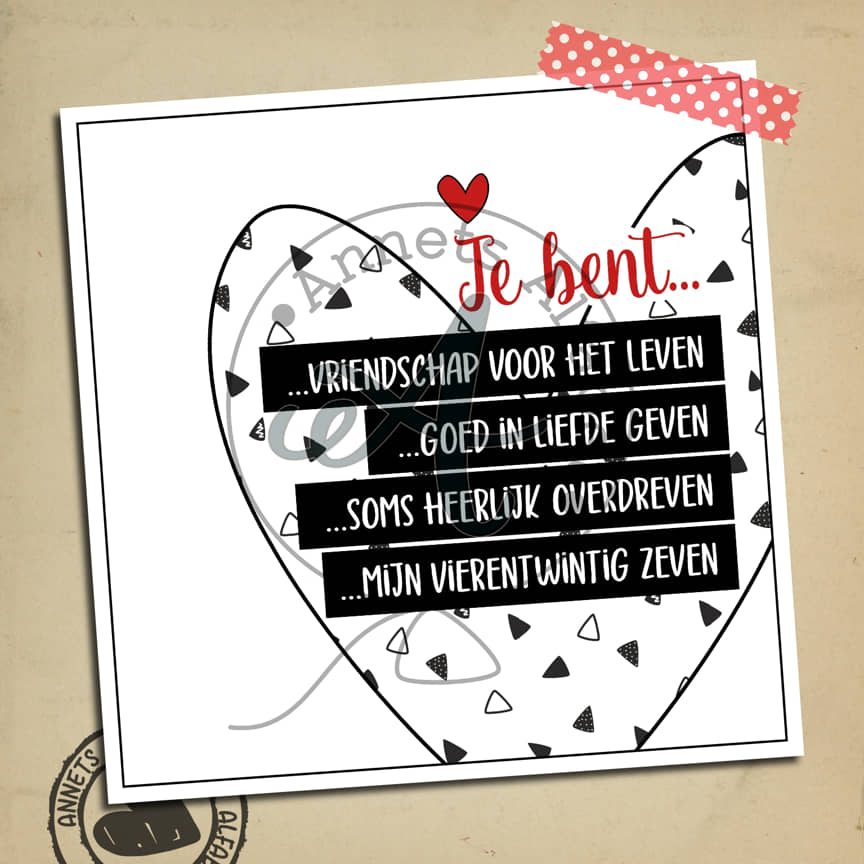 Je bent...
...VRIENDSCHAP VOOR HET LEVEN
...GOED IN LIEFDE GEVEN
...SOMS HEERLIJK OVERDREVEN
...MIJN VIERENTWINTIG ZEVEN
Annets
ANNETS